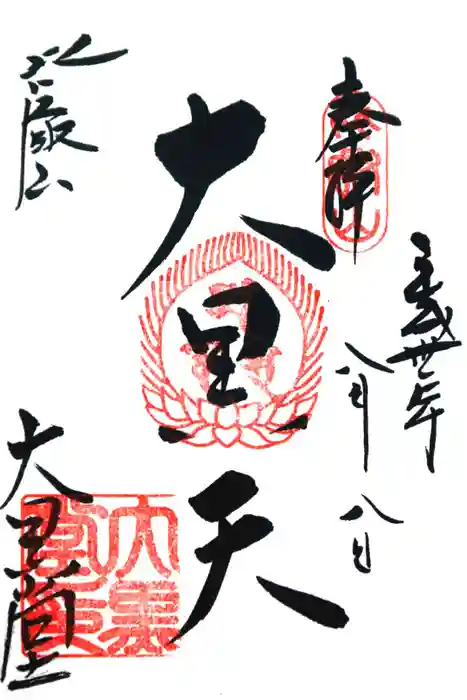 奉拝
平成卅年
八月八日
大黒天
比叡山
大黒堂
大黒
堂印